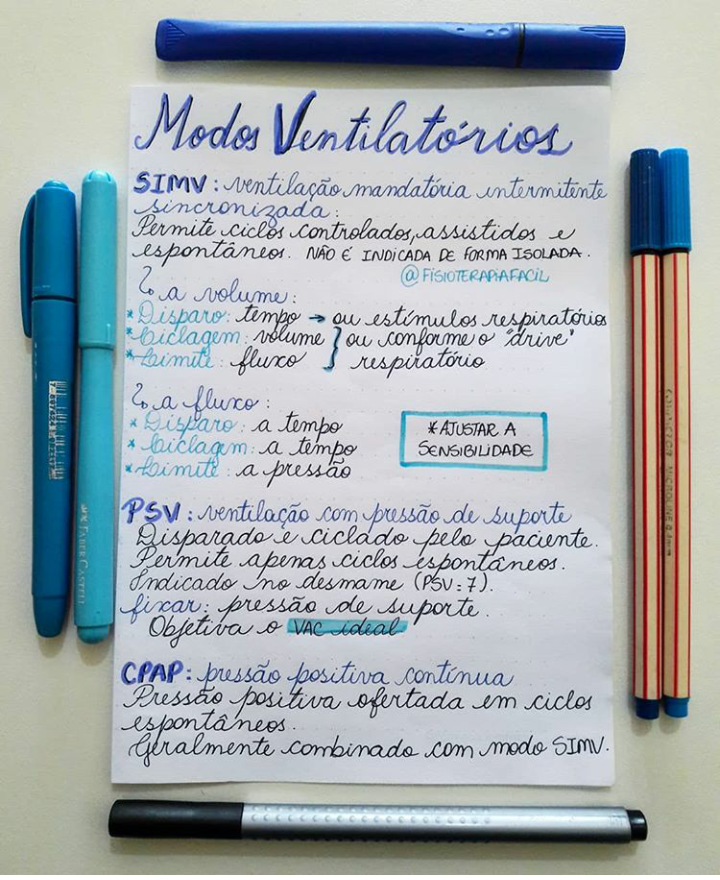 Modos Ventilatórios
SIMV: ventilação mandatória intermitente
sincronizada:
Permite ciclos controlados, assistidos e
espontâneos. NÃO É INDICADA DE FORMA ISOLADA.
@FISIOTERAPIAFACIL
↳ a volume:
* Disparo: tempo → ou estímulos respiratórios
* Ciclagem: volume } ou conforme o "drive"
* Limite: fluxo } respiratório
↳ a fluxo:
* Disparo: a tempo
* Ciclagem: a tempo
* Limite: a pressão
* AJUSTAR A
SENSIBILIDADE
PSV: ventilação com pressão de suporte
Disparado e ciclado pelo paciente.
Permite apenas ciclos espontâneos.
Indicado no desmame (PSV: 7).
fixar: pressão de suporte.
Objetiva o VAC ideal
CPAP: pressão positiva contínua
Pressão positiva ofertada em ciclos
espontâneos.
Geralmente combinado com modo SIMV.
FABER CASTELL